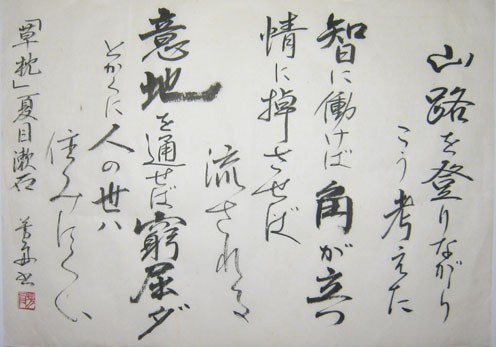 山路を登りながり
こう考えた
智に働けば角が立つ
情に掉させば
流される
意地を通せば窮屈ダ
とかくに人の世ハ
住みにくい
「草枕」夏目漱石
書